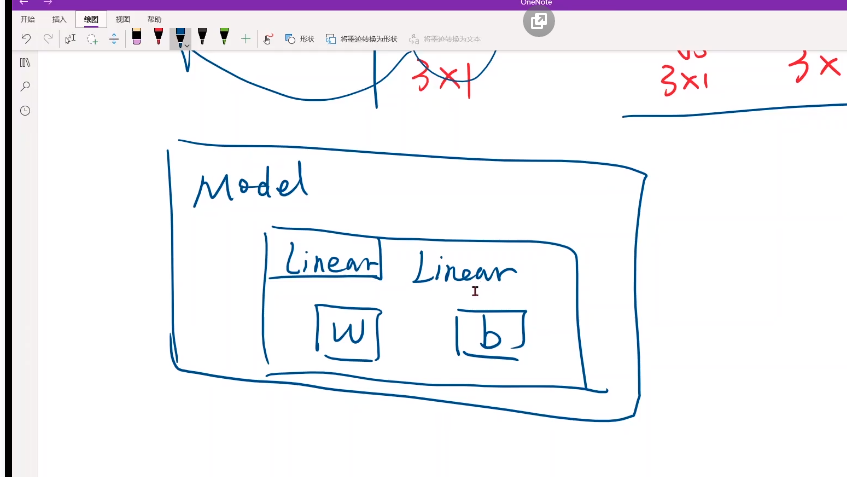 OneNote
开始 插入 绘图 视图 帮助
形状 将墨迹转换为形状 将墨迹转换为文本
3×1
3×1
3×
Model
Linear Linear
w b